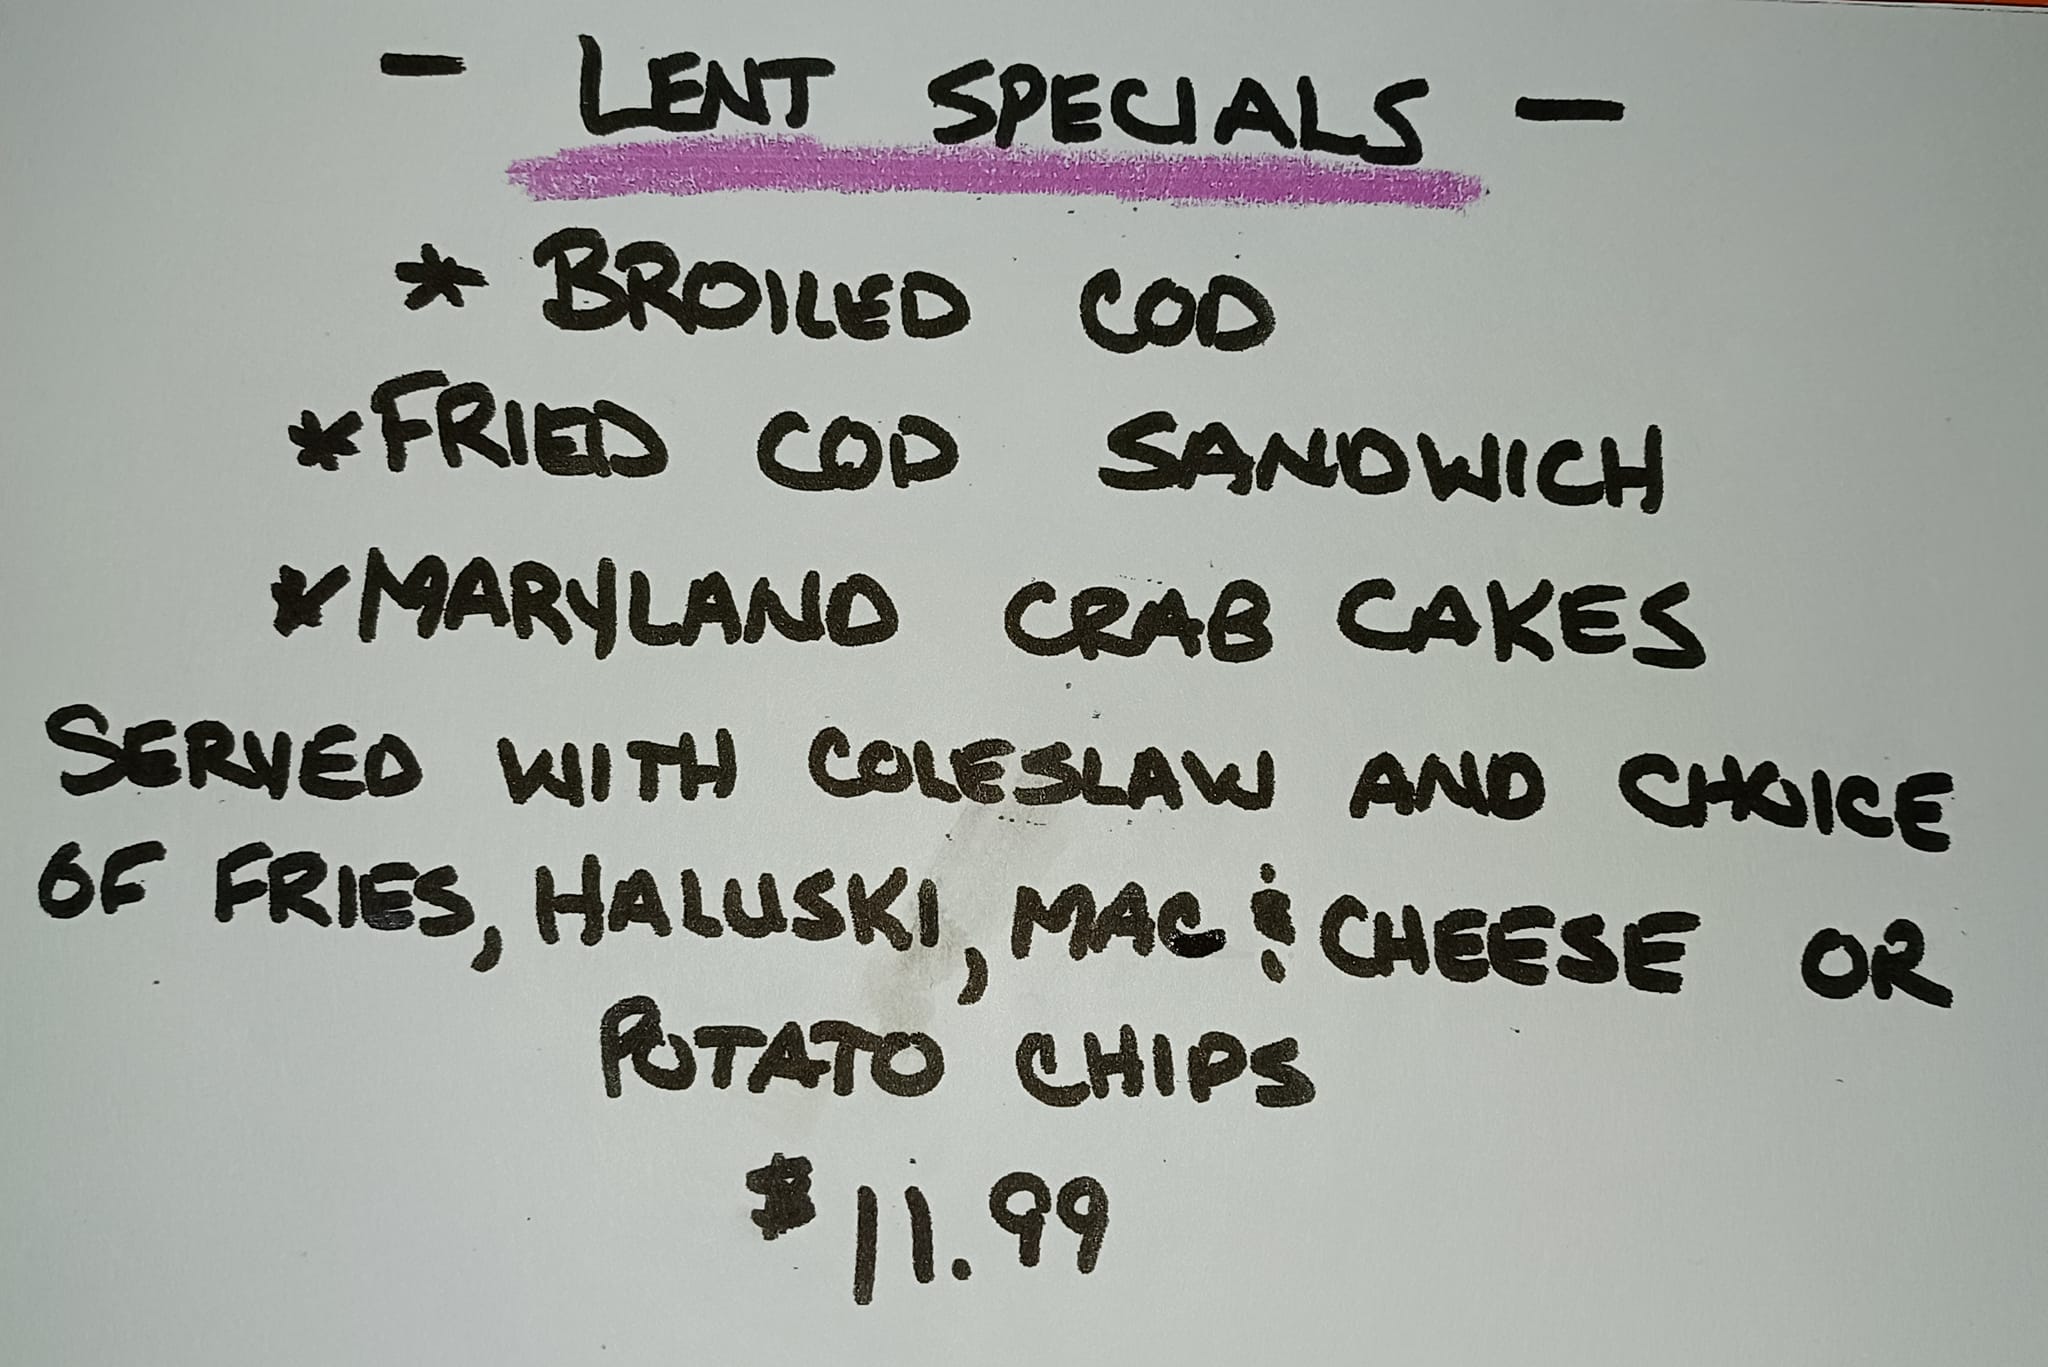 - LENT SPECIALS -
* BROILED COD
* FRIED COD SANDWICH
* MARYLAND CRAB CAKES
SERVED WITH COLESLAW AND CHOICE
OF FRIES, HALUSKI, MAC & CHEESE OR
POTATO CHIPS
$11.99